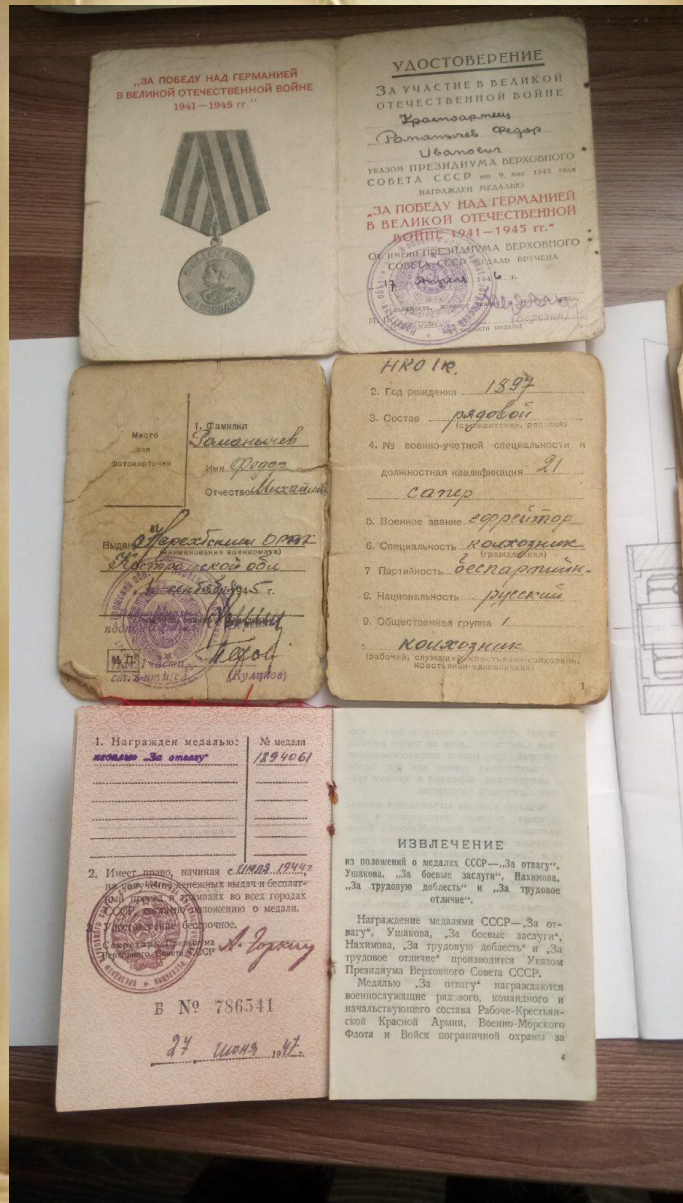 „ЗА ПОБЕДУ НАД ГЕРМАНИЕЙ
В ВЕЛИКОЙ ОТЕЧЕСТВЕННОЙ ВОЙНЕ
1941—1945 гг."
УДОСТОВЕРЕНИЕ
ЗА УЧАСТИЕ В ВЕЛИКОЙ
ОТЕЧЕСТВЕННОЙ ВОЙНЕ
Красноармеец
Романычев Федор
Иванович
УКАЗОМ ПРЕЗИДИУМА ВЕРХОВНОГО
СОВЕТА СССР от 9 мая 1945 года
НАГРАЖДЕН МЕДАЛЬЮ
„ЗА ПОБЕДУ НАД ГЕРМАНИЕЙ
В ВЕЛИКОЙ ОТЕЧЕСТВЕННОЙ
ВОЙНЕ 1941—1945 гг."
ОТ ИМЕНИ ПРЕЗИДИУМА ВЕРХОВНОГО
СОВЕТА СССР МЕДАЛЬ ВРУЧЕНА
17 Апреля 1946 г.
Место
для
фотокарточки
1. Фамилия
Романычев
Имя Федор
Отчество
Выдан Нерехтским
(наименование военкомата)
Костромской обл
1945 г.
М.П.
(Куликов)
НКО IК.
2. Год рождения 1897
3. Состав рядовой
4. № военно-учетной специальности и
должностная квалификация 21
сапер
5. Военное звание ефрейтор
6. Специальность колхозник
(гражданская)
7 Партийность беспартийн-
8. Национальность русский
9. Общественная группа 1
колхозник
1
1. Награжден медалью:
медалью „За отвагу"
№ медали
1294061
2. Имеет право, начиная с июля 1944 г.
на получение денежных выдач и бесплат-
ный проезд в трамваях во всех городах
СССР, согласно положению о медали.
Удостоверение бессрочное.
Секретарь Президиума
Верховного Совета СССР
А. Горкин
Б № 786541
27 июня 1947 г.
ИЗВЛЕЧЕНИЕ
из положений о медалях СССР—„За отвагу",
Ушакова, „За боевые заслуги", Нахимова,
„За трудовую доблесть" и „За трудовое
отличие".
Награждение медалями СССР—„За от-
вагу", Ушакова, „За боевые заслуги",
Нахимова, „За трудовую доблесть" и „За
трудовое отличие" производится Указом
Президиума Верховного Совета СССР.
Медалью „За отвагу" награждаются
военнослужащие рядового, командного и
начальствующего состава Рабоче-Крестьян-
ской Красной Армии, Военно-Морского
Флота и Войск пограничной охраны за
4